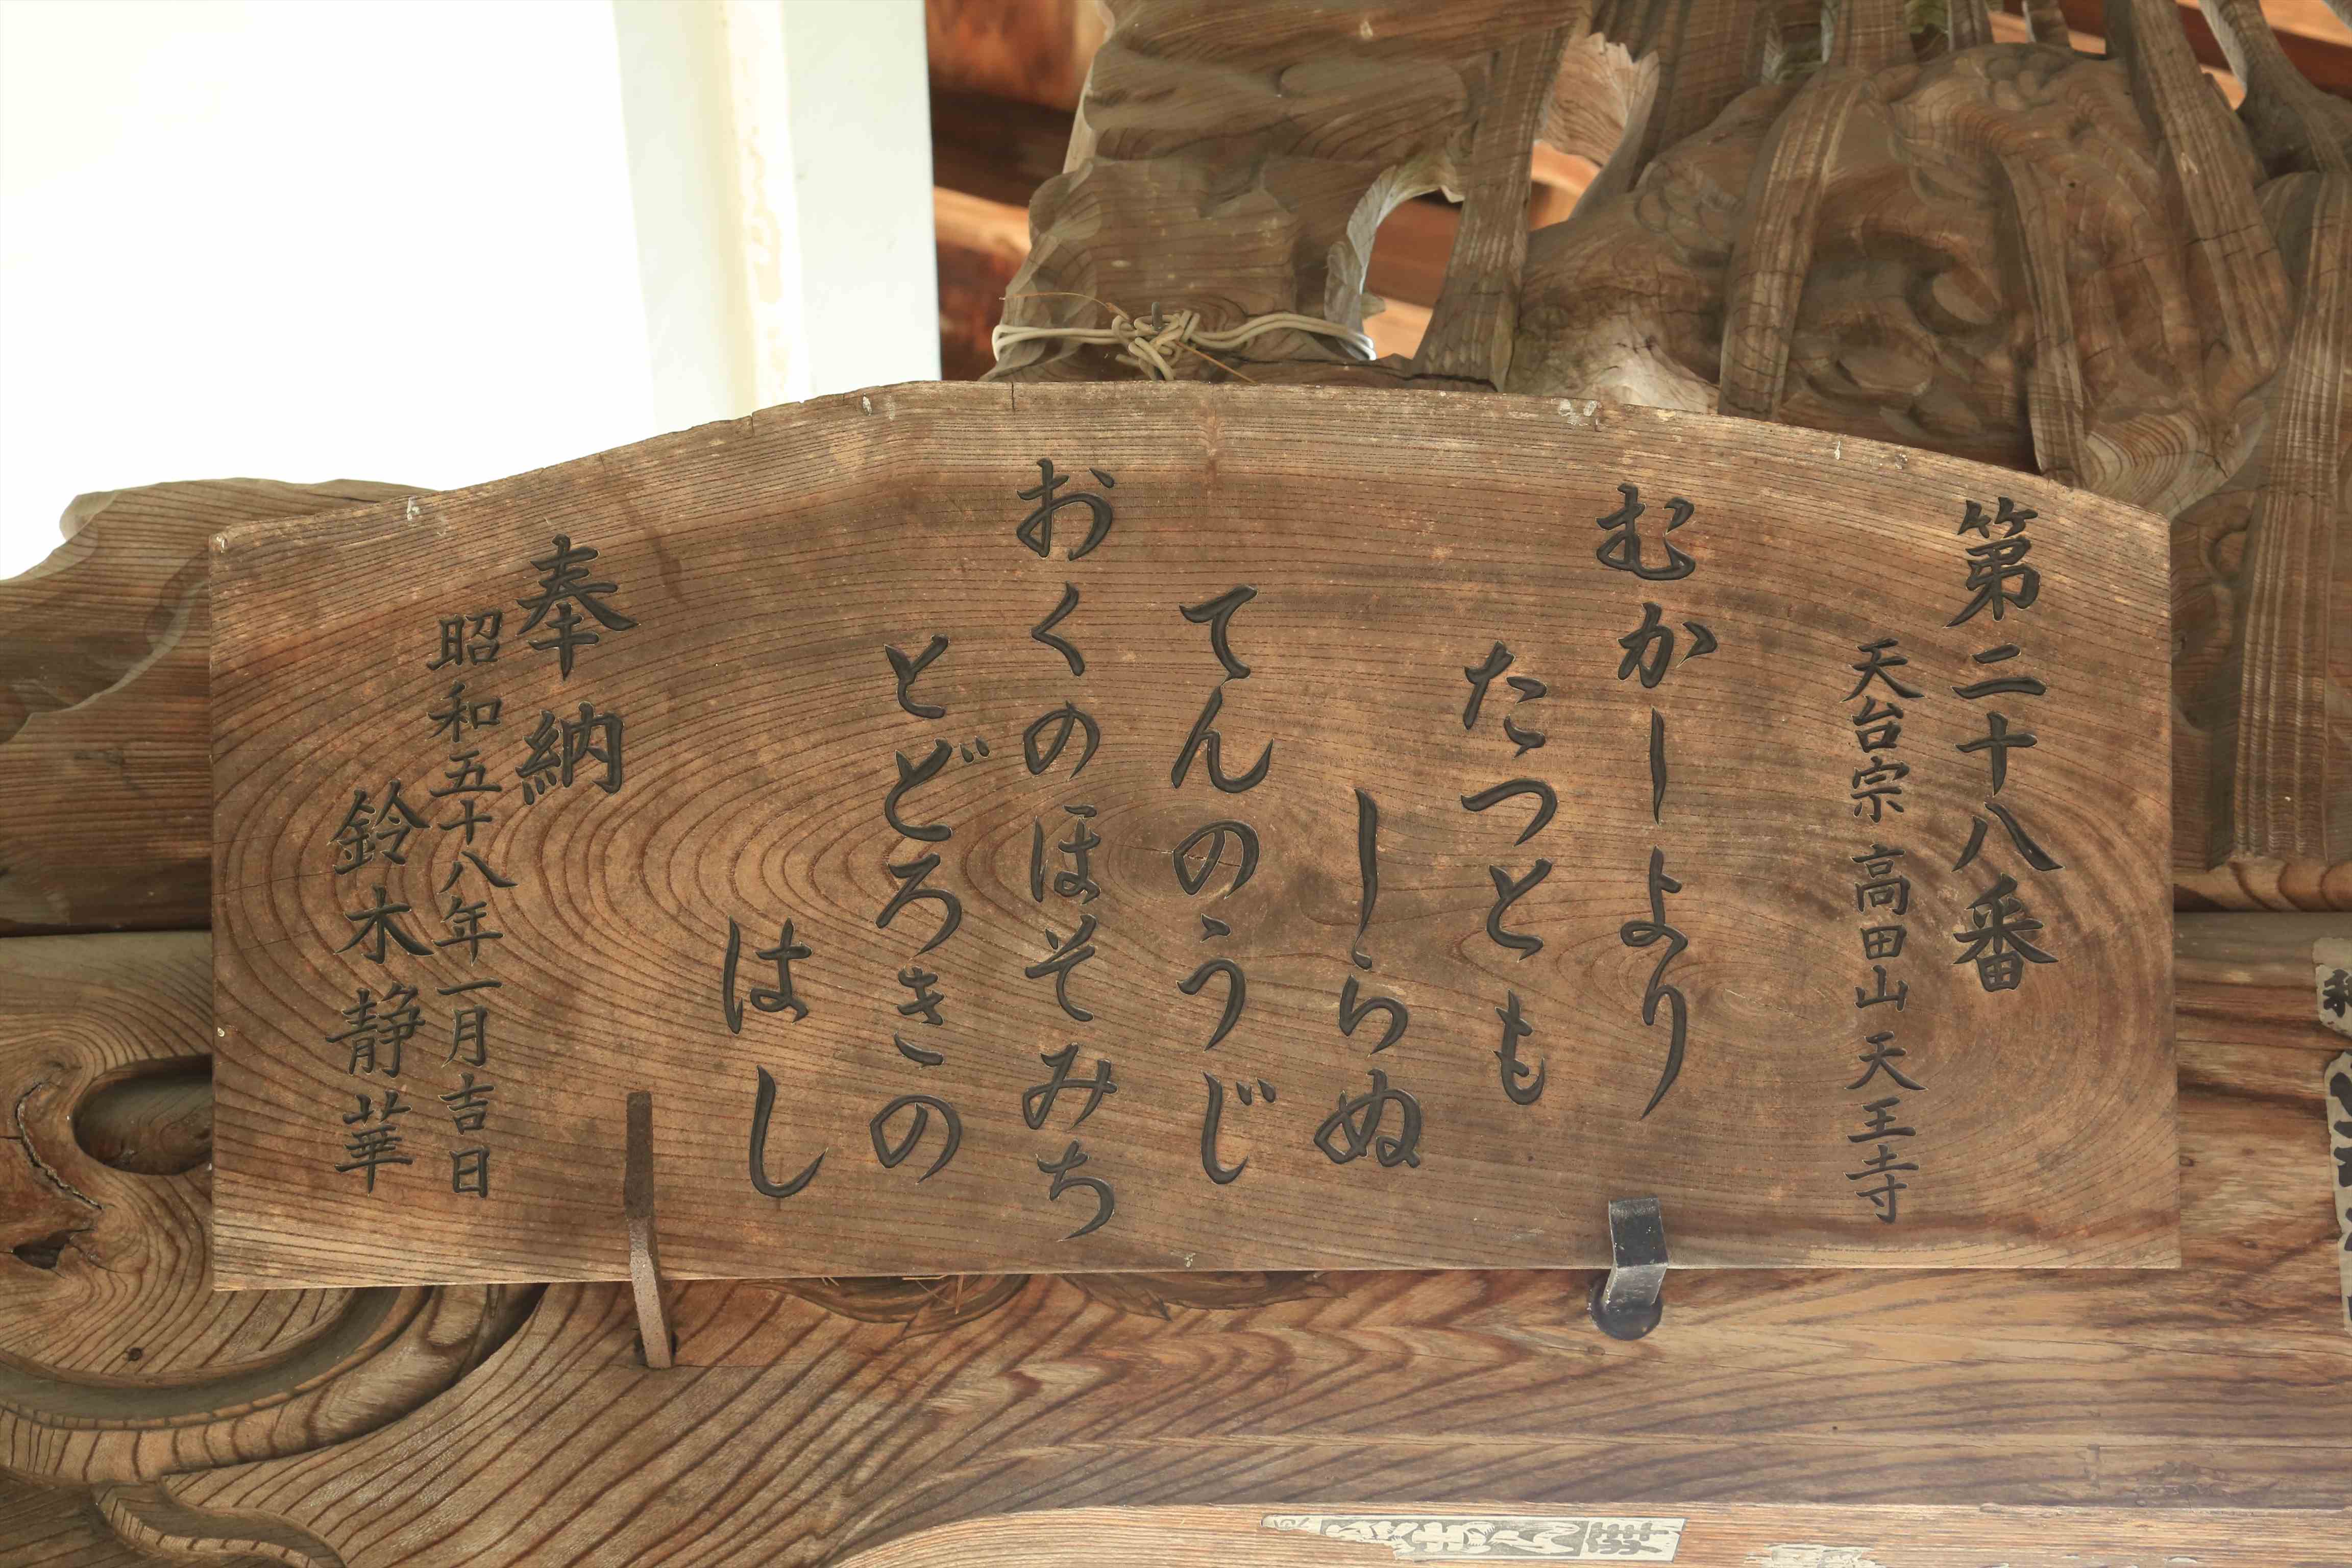 第二十八番
天台宗 高田山 天王寺
むかしより
たつとも
しらぬ
てんのうじ
おくのほそみち
とどろきの
はし
奉納
昭和五十八年一月吉日
鈴木静華